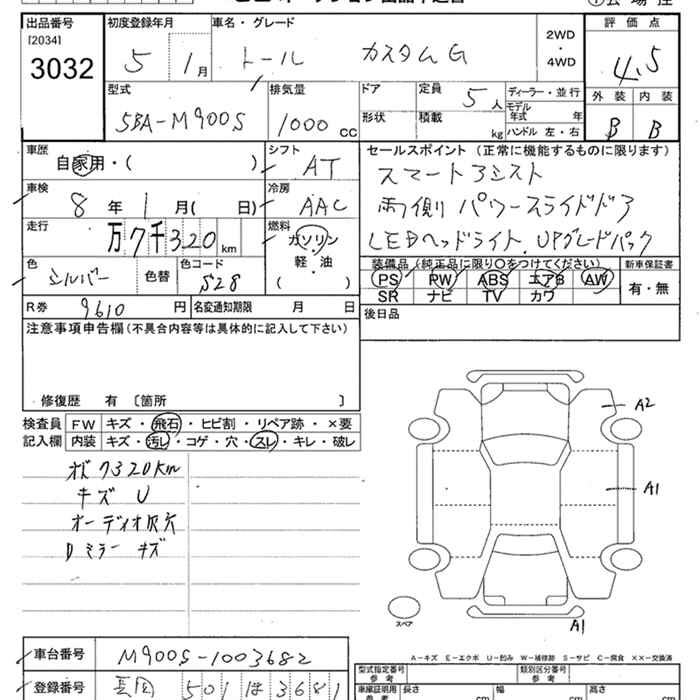 出品番号 初度登録年月 車名・グレード 2WD・4WD 評価点
[2034]
3032 5 1月 トール カスタムG 4.5
型式 排気量 ドア 定員 5人 ディーラー・並行 外装 内装
5BA-M900S 1000cc 形状 積載 kg モデル年式 年 ハンドル 左・右 B B
車歴 シフト セールスポイント (正常に機能するものに限ります)
自家用・( ) AT スマートアシスト
車検 冷房 両側パワースライドドア
8年1月( 日) AAC LEDヘッドライト.UPグレードパック
走行 燃料
万7千320km ガソリン・軽・油 ( )
装備品 (純正品に限り○をつけてください) 新車保証書
色 色替 色コード PS PW ABS エアB AW 有・無
シルバー 528 SR ナビ TV カワ
R券 9610円 名変通知期限 月 日 後日品
注意事項申告欄 (不具合内容等は具体的に記入して下さい)
修復歴 有 〔箇所 〕
検査員記入欄 FW キズ・飛石・ヒビ割・リペア跡・×要
内装 キズ・汚レ・コゲ・穴・スレ・キレ・破レ
7320km
キズ U
オーディオ欠穴
Dミラー キズ
A2
A1
A1
スペア
A-キズ E-エクボ U-凹み W-補修跡 S-サビ C-腐食 XX-交換済
車台番号 M900S-1003682
型式指定番号 参考 類別区分番号 参考
登録番号 長岡 501 は 3681
車庫証明用 参考 長さ cm 幅 cm 高さ cm